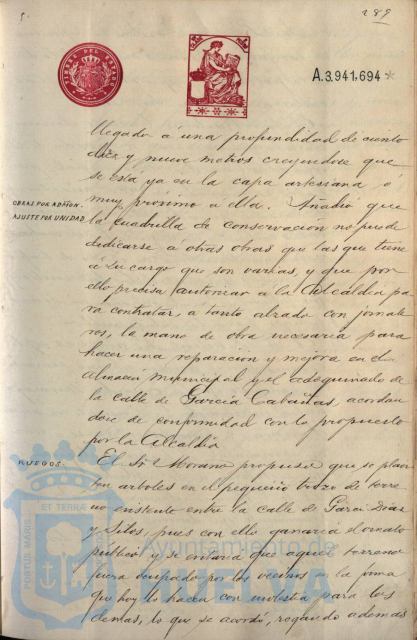 289
TIMBRE DEL ESTADO
A.3.941.694
llegado á una profundidad de ciento
diez y nueve metros creyendose que
se está ya en la capa artesiana ó
muy próximo á ella. Añadió que
OBRAS POR ADMÓN.
AJUSTE POR UNIDAD
la cuadrilla de conservación no puede
dedicarse a otras obras que las que tiene
á su cargo que son varias, y que por
ello precisa autorizar a la Alcaldia pa
ra contratar, a tanto alzado con jornale
ros, la mano de obra necesaria para
hacer una reparacion y mejora en el
Almacén Municipal y el adoquinado de
la calle de Garcia Cabañas, acordan
dose de conformidad con lo propuesto
por la Alcaldía
RUEGOS.
El Sr. Morano propuso que se planta
ten arboles en el pequeño trozo de terre
no existente entre la calle de Garci Diaz
y Silos, pues con ello ganaría el ornato
publico y se evitaria que aquel terreno
fuera ocupado por los vecinos en la forma
que hoy lo hacen con molestia para los
demas, lo que se acordó, rogando ademas
PORTUS MARIS ET TERRAE
Ayuntamiento de
HUELVA